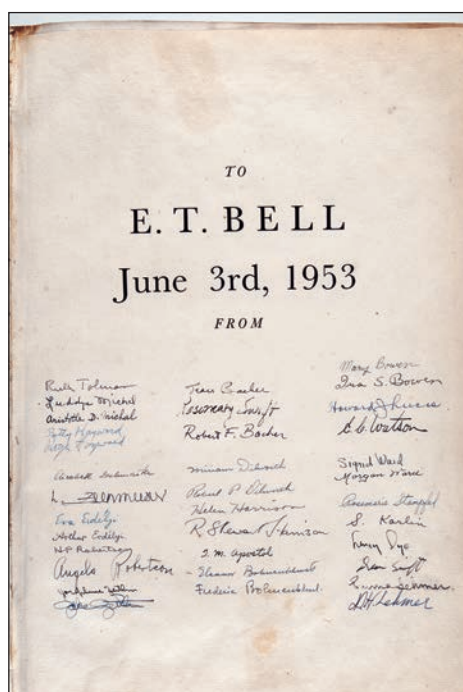 TO
E. T. BELL
June 3rd, 1953
FROM
Ruth Tolman
Luddye Michal
Aristotle D. Michal
Betty Hayward
Hayward
Eva Erdélyi
Arthur Erdélyi
H.P. Robertson
Angela Robertson
Josephine
Jean Bacher
Rosemary Swift
Robert F. Bacher
Miriam Dilworth
Robert P. Dilworth
Helen Harrison
R. Stewart Harrison
T. M. Apostol
Eleanor Bohnenblust
Frederic Bohnenblust
Mary Bowen
Ira S. Bowen
Howard J Lucas
E. C. Watson
Sigrid Ward
Morgan Ward
Rosemarie Stampfel
S. Karlin
Henry Dye
Swift
Emma Lehmer
D.H. Lehmer